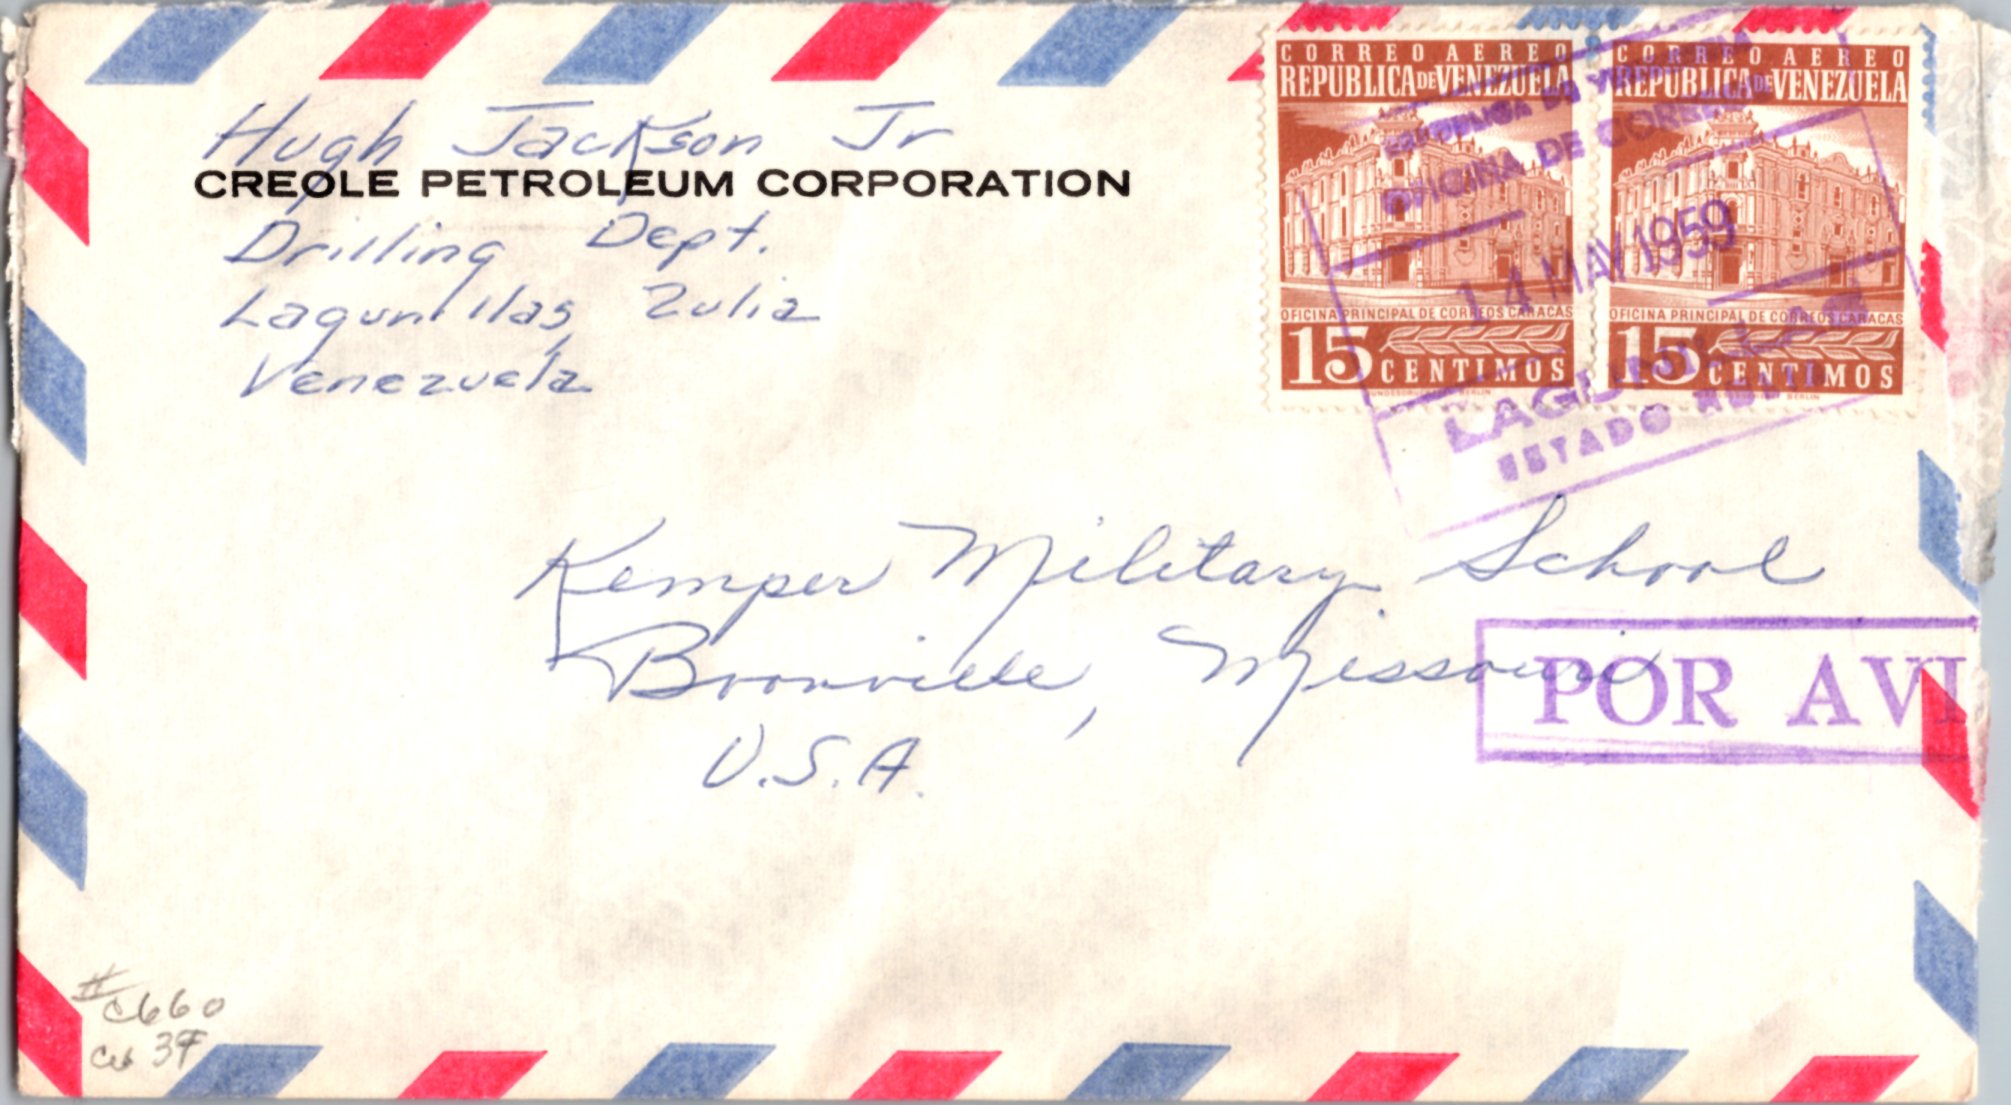 Hugh Jackson Jr
CREOLE PETROLEUM CORPORATION
Drilling Dept.
Lagunillas, Zulia
Venezuela
CORREO AEREO
REPUBLICA DE VENEZUELA
OFICINA PRINCIPAL DE CORREOS CARACAS
15 CENTIMOS
CORREO AEREO
REPUBLICA DE VENEZUELA
OFICINA PRINCIPAL DE CORREOS CARACAS
15 CENTIMOS
OFICINA DE CORREOS
14 MAY 1959
LAGUNILLAS
ESTADO
Kemper Military School
Boonville, Missouri
U.S.A.
POR AVI
#
C660